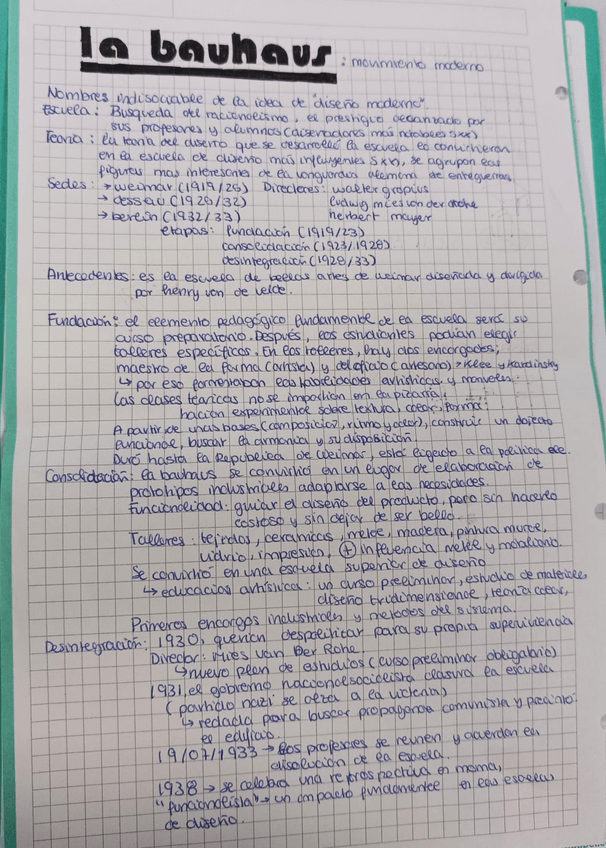 la bauhaus : movimiento moderno
Nombres indisociable de la idea de "diseño moderno".
Escuela: Busqueda del racionalismo, el prestigio decantado por
sus profesores y alumnos (diseñadores más notables sxx)
Teoría: la teoría del diseño que se desarrolló la escuela la convirtieron
en la escuela de diseño más influyentes sxx, se agrupan las
figuras más interesantes de la vanguardia alemana de entreguerras
Sedes: → weimar (1919/25) Directores: walter gropius
→ dessau (1926/32) ludwig mies van der rohe
→ berlín (1932/33) herbert mayer
etapas: fundación (1919/23)
consolidación (1923/1928)
desintegración (1928/33)
Antecedentes: es la escuela de bellas artes de weimar diseñada y dirigida
por henry van de velde.
Fundación: el elemento pedagógico fundamente de la escuela será su
curso preparatorio. Después, los estudiantes podían elegir
talleres específicos. En los talleres, hay dos encargados;
maestro de la forma (artista) y del oficio (artesano) → Klee y kandinsky
↳ por eso fomentaban las habilidades artísticas y manuales.
Las clases teóricas no se impartían en la pizarra,
hacían experimentos sobre textura, color, forma;
A partir de unas bases (composición, ritmo y color), construir un objeto
funcional, buscar la armonía y su disposición.
Duró hasta la República de Weimar, está ligado a la política
Consolidación: la bauhaus se convirtió en un lugar de elaboración de
prototipos industriales adaptarse a las necesidades.
Funcionalidad: guiar el diseño del producto, pero sin hacerlo
costoso y sin dejar de ser bello.
Talleres: tejidos, cerámicas, metal, madera, pintura mural,
vidrio, impresión, ⊕ influencia metal y mobiliario.
Se convirtió en una escuela superior de diseño
↳ educación artística: un curso preliminar, estudio de materiales,
diseño tridimensional, teoría color,
Primeros encargos industriales y métodos del sistema.
Desintegración: 1930, querían despolitizar para su propia supervivencia
Director: Mies van Der Rohe.
↳ nuevo plan de estudios (curso preliminar obligatorio)
1931, el gobierno nacionalsocialista clausura la escuela
(partido nazi se alza a la victoria)
↳ redada para buscar propaganda comunista y precintó
el edificio.
19/07/1933 → los profesores se reunen y acuerdan la
disolución de la escuela.
1938 → se celebra una retrospectiva en moma,
"funcionalista" → un impacto fundamente en las escuelas
de diseño.